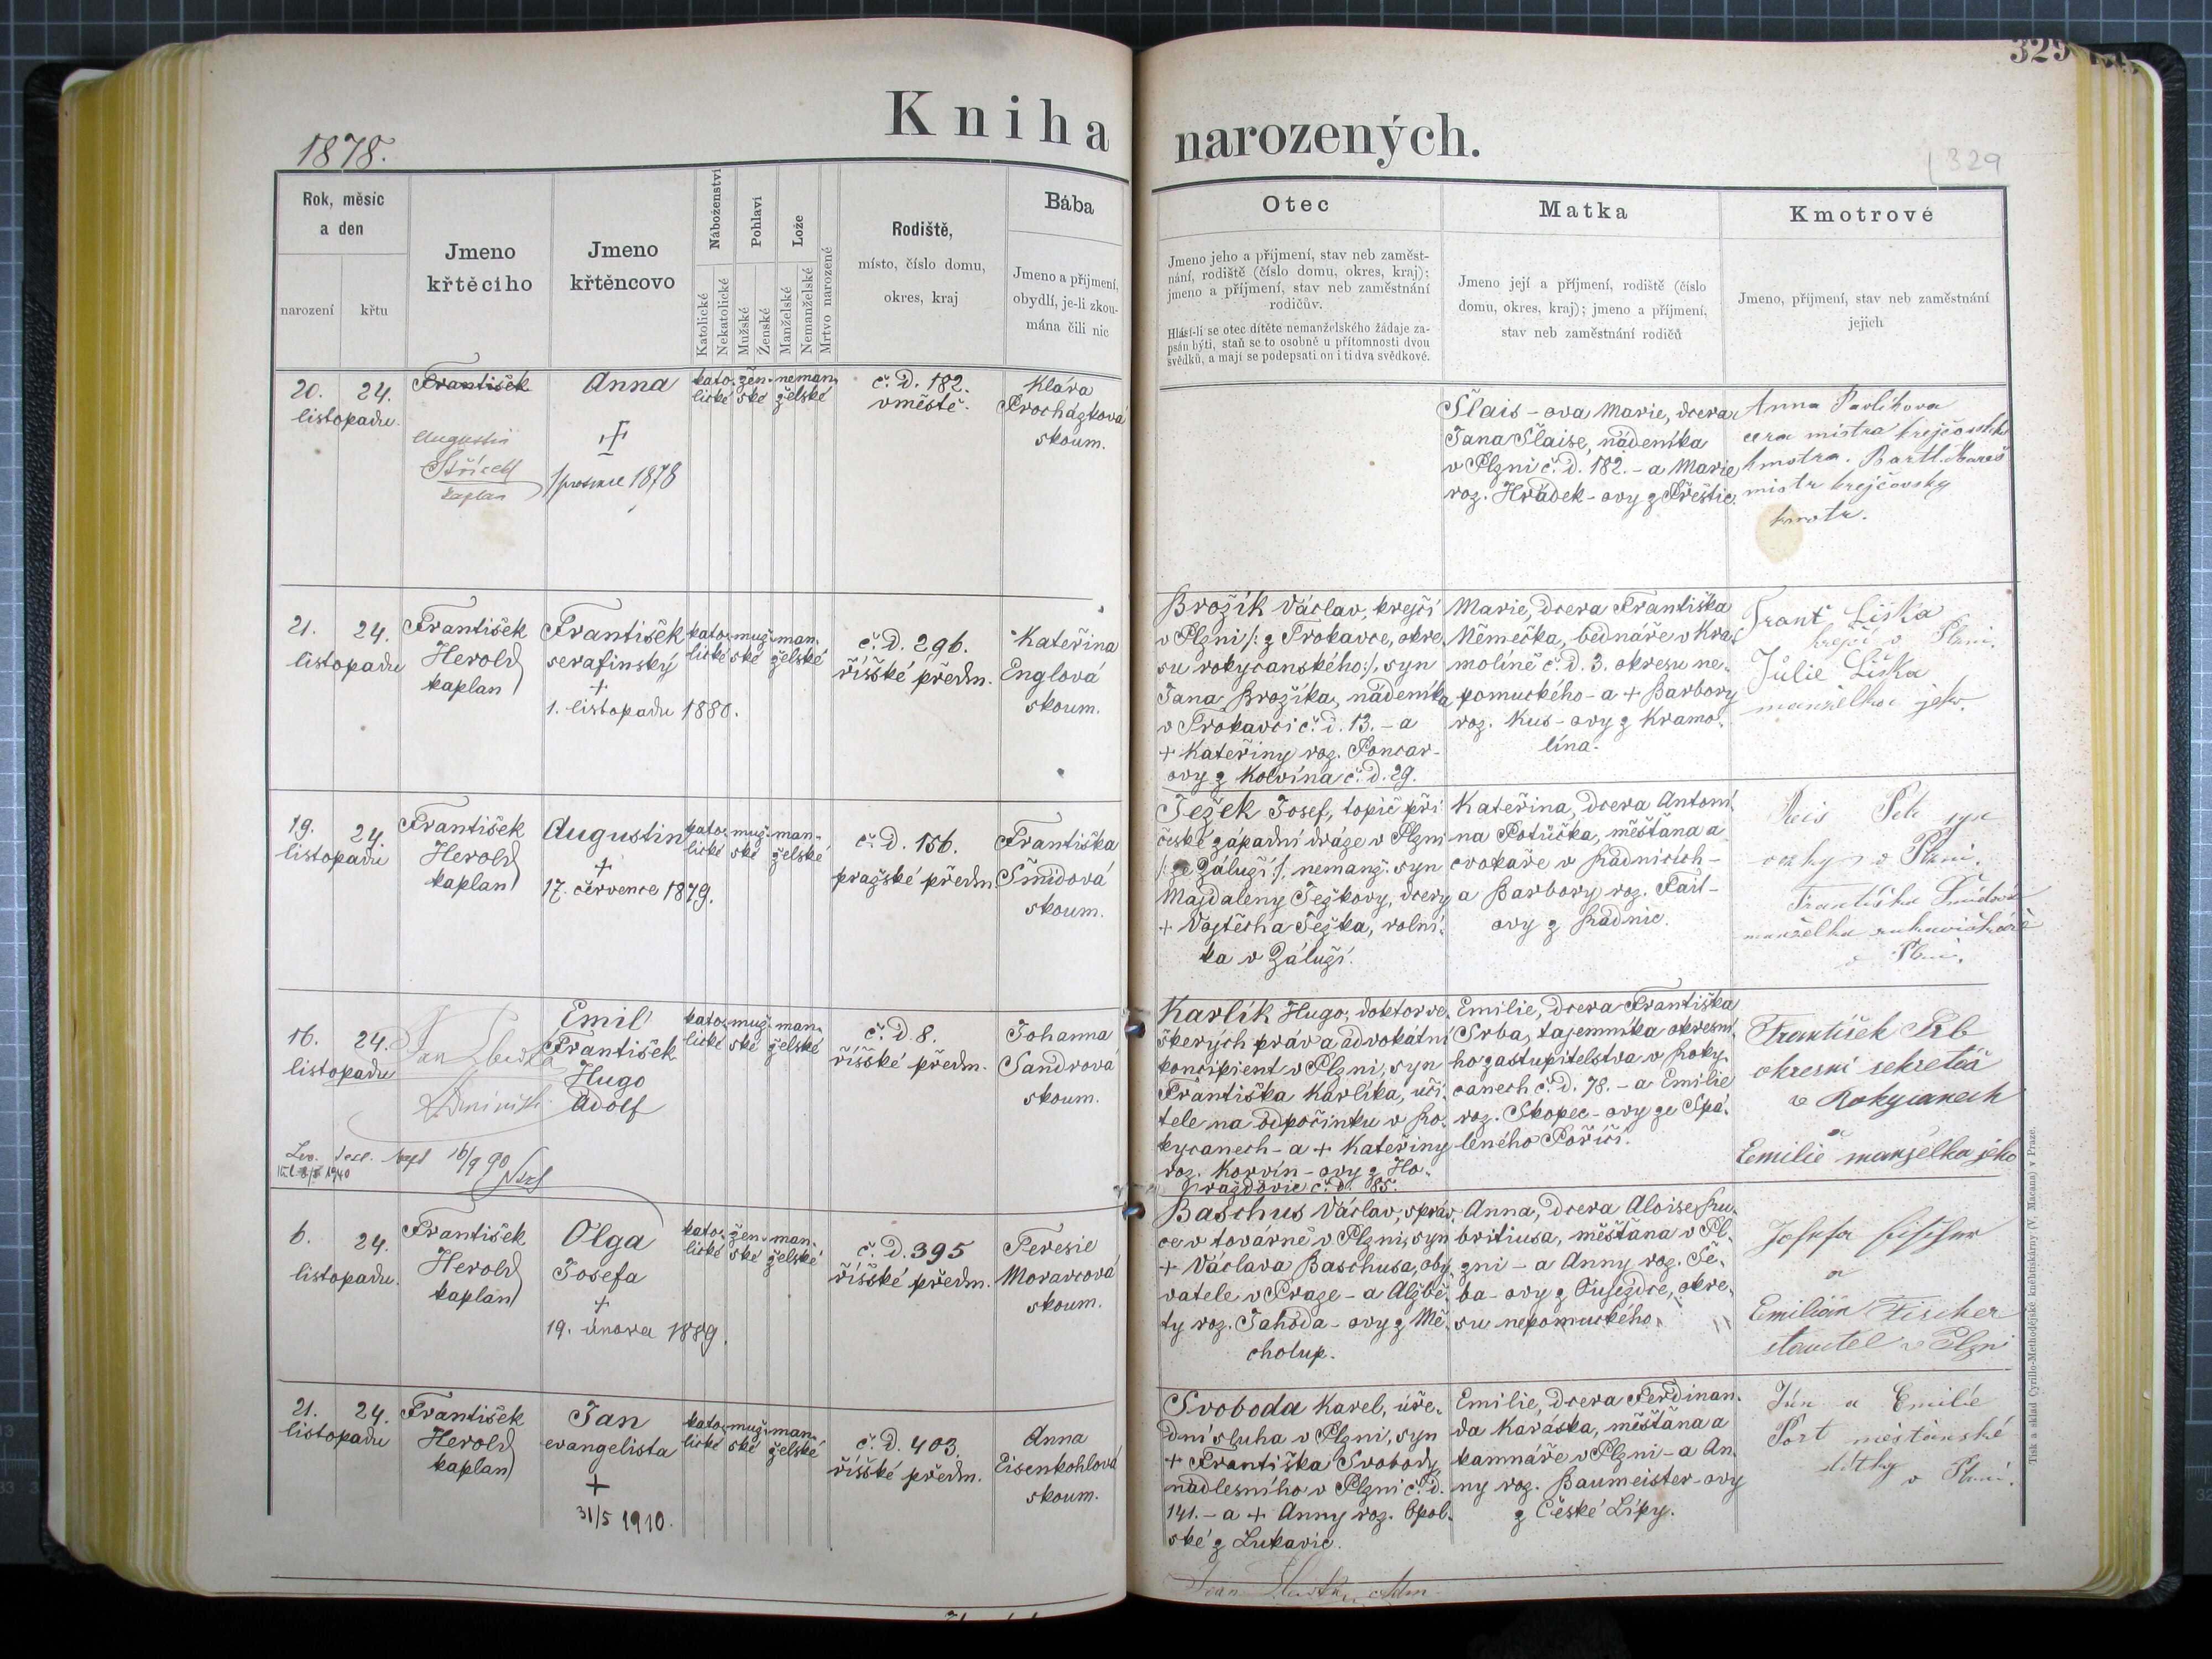 329
Kniha narozených.
1878.
329
Rok, měsíc
a den
narození
křtu
Jmeno
křtěcího
Jmeno
křtěncovo
Náboženství
Katolické
Nekatolické
Pohlaví
Mužské
Ženské
Lože
Manželské
Nemanželské
Mrtvo narozené
Rodiště,
místo, číslo domu,
okres, kraj
Bába
Jmeno a příjmení,
obydlí, je-li zkou-
mána čili nic
Otec
Jmeno jeho a příjmení, stav neb zaměst-
nání, rodiště (číslo domu, okres, kraj);
jmeno a příjmení, stav neb zaměstnání
rodičův.
Hlásí-li se otec dítěte nemanželského žádaje za-
psán býti, staň se to osobně u přítomnosti dvou
svědků, a mají se podepsati on i ti dva svědkové.
Matka
Jmeno její a příjmení, rodiště (číslo
domu, okres, kraj); jmeno a příjmení,
stav neb zaměstnání rodičů
Kmotrové
Jmeno, příjmení, stav neb zaměstnání
jejich
20. 24.
listopadu.
František
Augustin
kaplan
Anna
1 prosince 1878
kato-
lické
žen-
ské
neman-
želské
č. d. 182.
v městě.
Klára
Procházková
skoum.
Šlais-ova Marie, dcera
Jana Šlaise, nádeníka
v Plzni č. d. 182. - a Marie
roz. Hrádek-ovy z Přeštic.
Anna Pavlíkova
cera mistra
kmotra. Bartl. Mareš
mistr krejčovsky
kmotr.
21. 24.
listopadu
František
Herold
kaplan
František
serafinský
+
1. listopadu 1880.
kato-
lické
muž-
ské
man-
želské
č. d. 296.
říšské předm.
Kateřina
Englová
skoum.
Brožík Václav, krejčí
v Plzni /: z Trokavce, okre-
su rokycanského :/, syn
Jana Brožíka, nádeníka
v Trokavci č. d. 13. - a
+ Kateřiny roz. Poncar-
ovy z Kolvína č. d. 29.
Marie, dcera Františka
Němečka, bednáře v Kra-
molíně č. d. 3. okresu ne-
pomuckého - a + Barbory
roz. Kus-ovy z Kramo-
lína.
Frant Liška
krejčí v Plzni.
Julie Liška
manželka jeho.
19. 24.
listopadu
František
Herold
kaplan
Augustin
+
17. července 1879.
kato-
lické
muž-
ské
man-
želské
č. d. 156.
pražské předm.
Františka
Šmidová
skoum.
Ježek Josef, topič při
české západní dráze v Plzni
/: ze Záluží :/, nemanž. syn
Majdaleny Ježkovy, dcery
+ Vojtěcha Ježka, rolní-
ka v Záluží.
Kateřina, dcera Antoní-
na Potůčka, měšťana a
cvokaře v Radnicích -
a Barbory roz. Fait-
ovy z Radnic.
v Plzni.
Františka Šmidová
manželka rukavičkáře
v Plzni.
16. 24.
listopadu
Emil
František
Hugo
Adolf
kato-
lické
muž-
ské
man-
želské
č. d. 8.
říšské předm.
Johanna
Sandrová
skoum.
Karlík Hugo, doktor ve-
škerých práv a advokátní
koncipient v Plzni, syn
Františka Karlíka, uči-
tele na odpočinku v Ro-
kycanech - a + Kateřiny
roz. Korvín-ovy z Ho-
ražďovic č. d. 85.
Emilie, dcera Františka
Srba, tajemníka okresní-
ho zastupitelstva v Roky-
canech č. d. 78. - a Emilie
roz. Skopec-ovy ze Spá-
leného Poříčí.
František Srb
okresní sekretář
v Rokycanech
a
Emilie manželka jeho
16/9 90
6. 24.
listopadu.
František
Herold
kaplan
Olga
Josefa
+
19. února 1889.
kato-
lické
žen-
ské
man-
želské
č. d. 395
říšské předm.
Teresie
Moravcová
skoum.
Baschus Václav, správ-
ce v továrně v Plzni, syn
+ Václava Baschusa, oby-
vatele v Praze - a Alžbě-
ty roz. Jahoda-ovy z Mě-
cholup.
Anna, dcera Aloise Ru-
britiusa, měšťana v Pl-
zni - a Anny roz. Še-
ba-ovy z Oujezdce, okre-
su nepomuckého.
Josefa Fischer
a
Emilián Fischer
stavitel v Plzni
21. 24.
listopadu
František
Herold
kaplan
Jan
evangelista
+
31/5 1910.
kato-
lické
muž-
ské
man-
želské
č. d. 403
říšské předm.
Anna
Eisenkohlová
skoum.
Svoboda Karel, úře-
dní sluha v Plzni, syn
+ Františka Svobody,
nadlesního v Plzni č. d.
141. - a + Anny roz. Opol-
ské z Lukavic.
Emilie, dcera Ferdinan-
da Karáska, měšťana a
kamnáře v Plzni - a An-
ny roz. Baumeister-ovy
z České Lípy.
Jan a Emilie
Port měšťanské
dítky v Plzni.
Tisk a sklad Cyrillo-Methodějské knihtiskárny (V. Macana) v Praze.